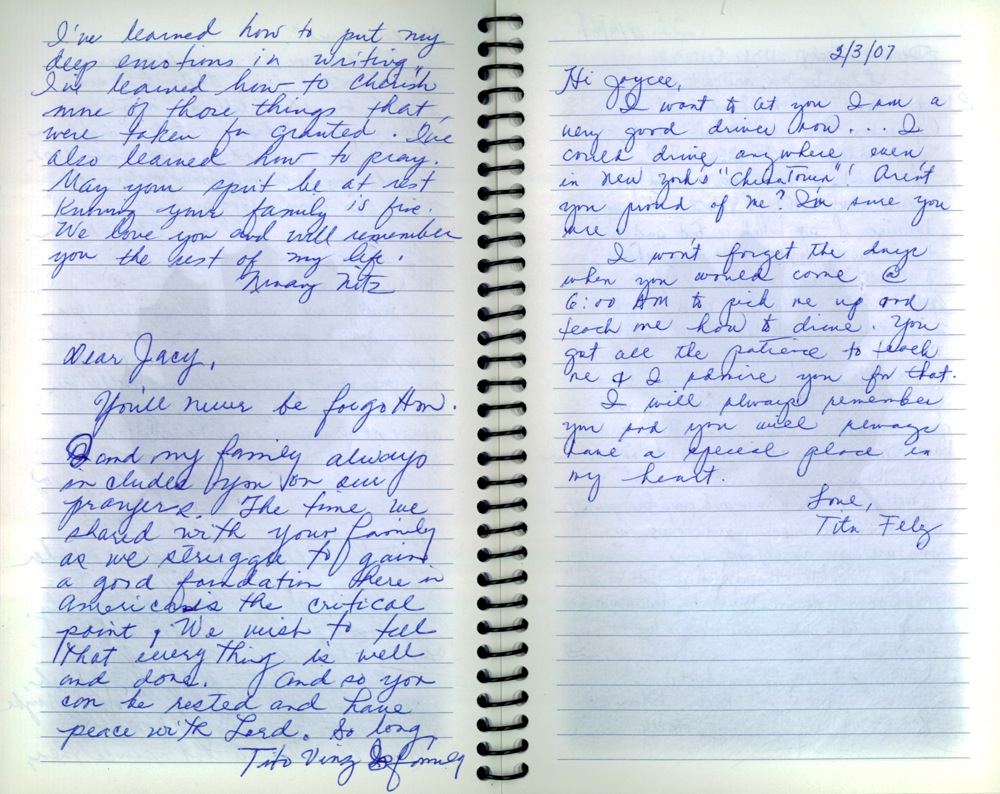 I've learned how to put my
deep emotions in writing.
I've learned how to cherish
mne of those things that
were taken fn granted. I've
also learned how to pray.
May your spirit be at rest
knowing your family is fine.
We love you and will remember
you the rest of my life.
Ninang Nitz
Dear Jacy,
You'll never be forgotten.
I and my family always
includes you on our
prayers. The time we
shared with your family
as we struggle to gain
a good foundation here in
America is the critical
point, We wish to tell
that everything is well
and done. And so you
can be rested and have
peace with Lord. So long,
Tito Vinz & family
2/3/07
Hi Joycee,
I want to let you I am a
very good driver now... I
could drive anywhere even
in New York's "ChinaTown"! Aren't
you proud of me? I'm sure you
are
I won't forget the days
when you would come @
6:00 AM to pick me up and
teach me how to drive. You
got all the patience to teach
me & I admire you for that.
I will always remember
you and you will always
have a special place in
my heart.
Love,
Tita Felz